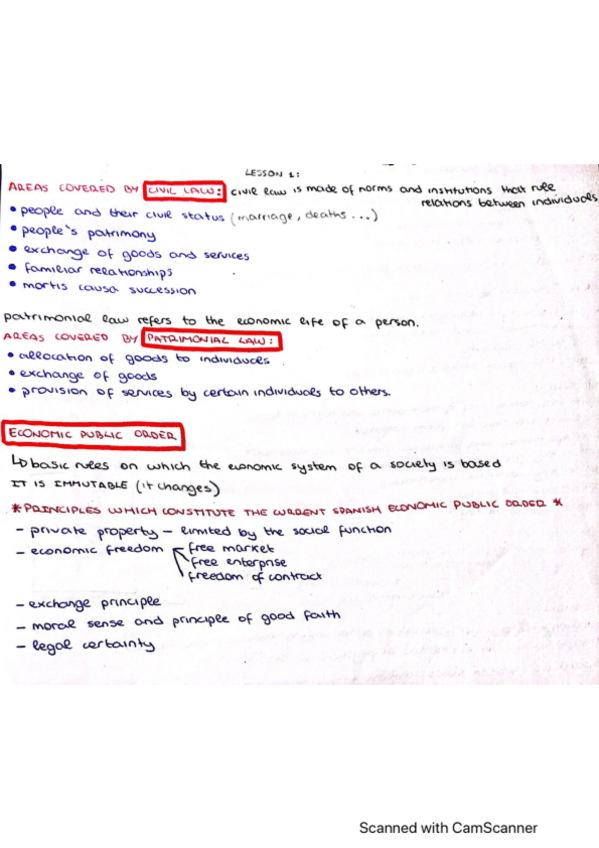 LESSON 1:
AREAS COVERED BY CIVIL LAW: civil law is made of norms and institutions that rule
relations between individuals
• people and their civil status (marriage, deaths...)
• people's patrimony
• exchange of goods and services
• familiar relationships
• mortis causa succession
patrimonial law refers to the economic life of a person.
AREAS COVERED BY PATRIMONIAL LAW:
• allocation of goods to individuals
• exchange of goods
• provision of services by certain individuals to others.
ECONOMIC PUBLIC ORDER
↳ basic rules on which the economic system of a society is based
IT IS IMMUTABLE (it changes)
* PRINCIPLES WHICH CONSTITUTE THE CURRENT SPANISH ECONOMIC PUBLIC ORDER *
- private property - limited by the social function
- economic freedom free market
free enterprise
freedom of contract
- exchange principle
- moral sense and principle of good faith
- legal certainty
Scanned with CamScanner